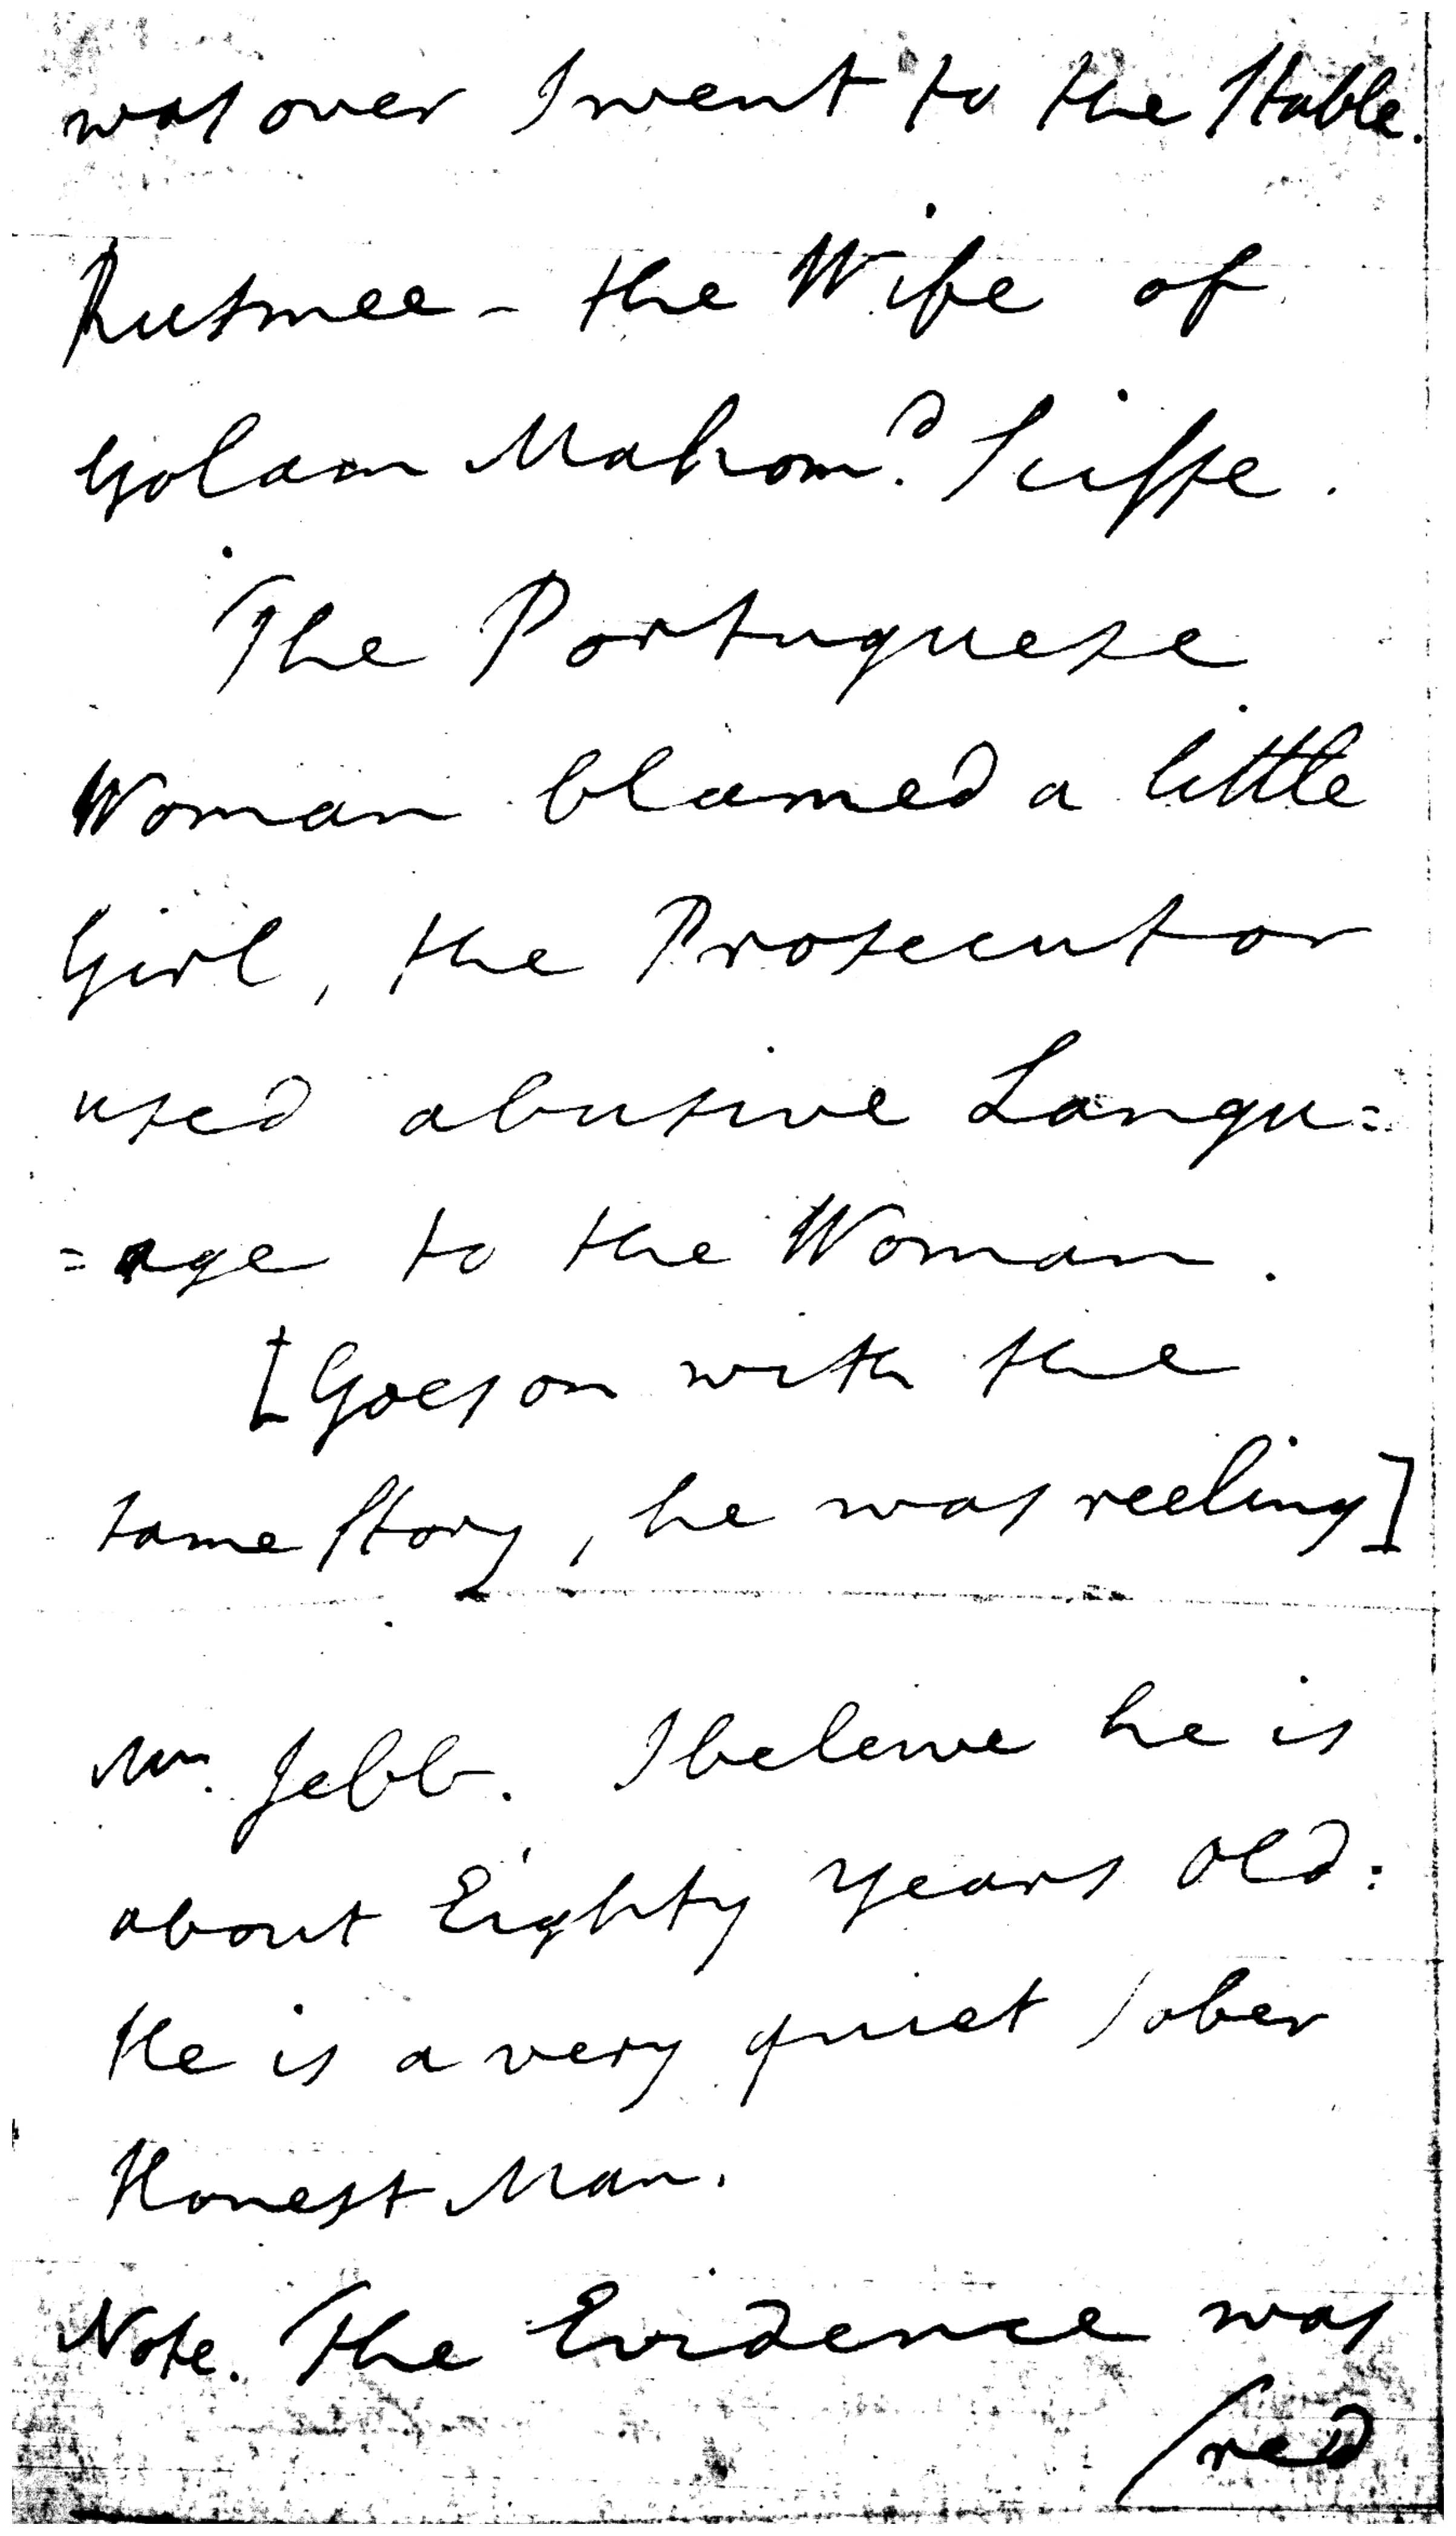 was over I went to the Stable.
Rusmee - the Wife of
Golam Mahom.d
The Portuguese
Woman blamed a little
Girl, the Prosecutor
used abusive Langu=
=age to the Woman.
[Goes on with the
same Story, he was reeling]
Mr. Jebb. I beleive he is
about Eighty Years Old:
He is a very quiet Sober
Honest Man.
Note. The Evidence was